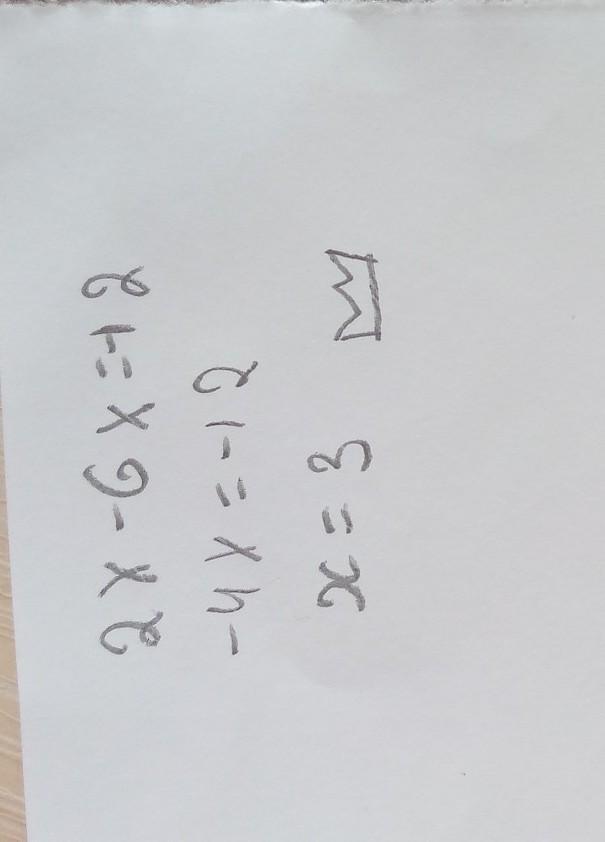 2x-6x=-12
-4x=-12
x=3